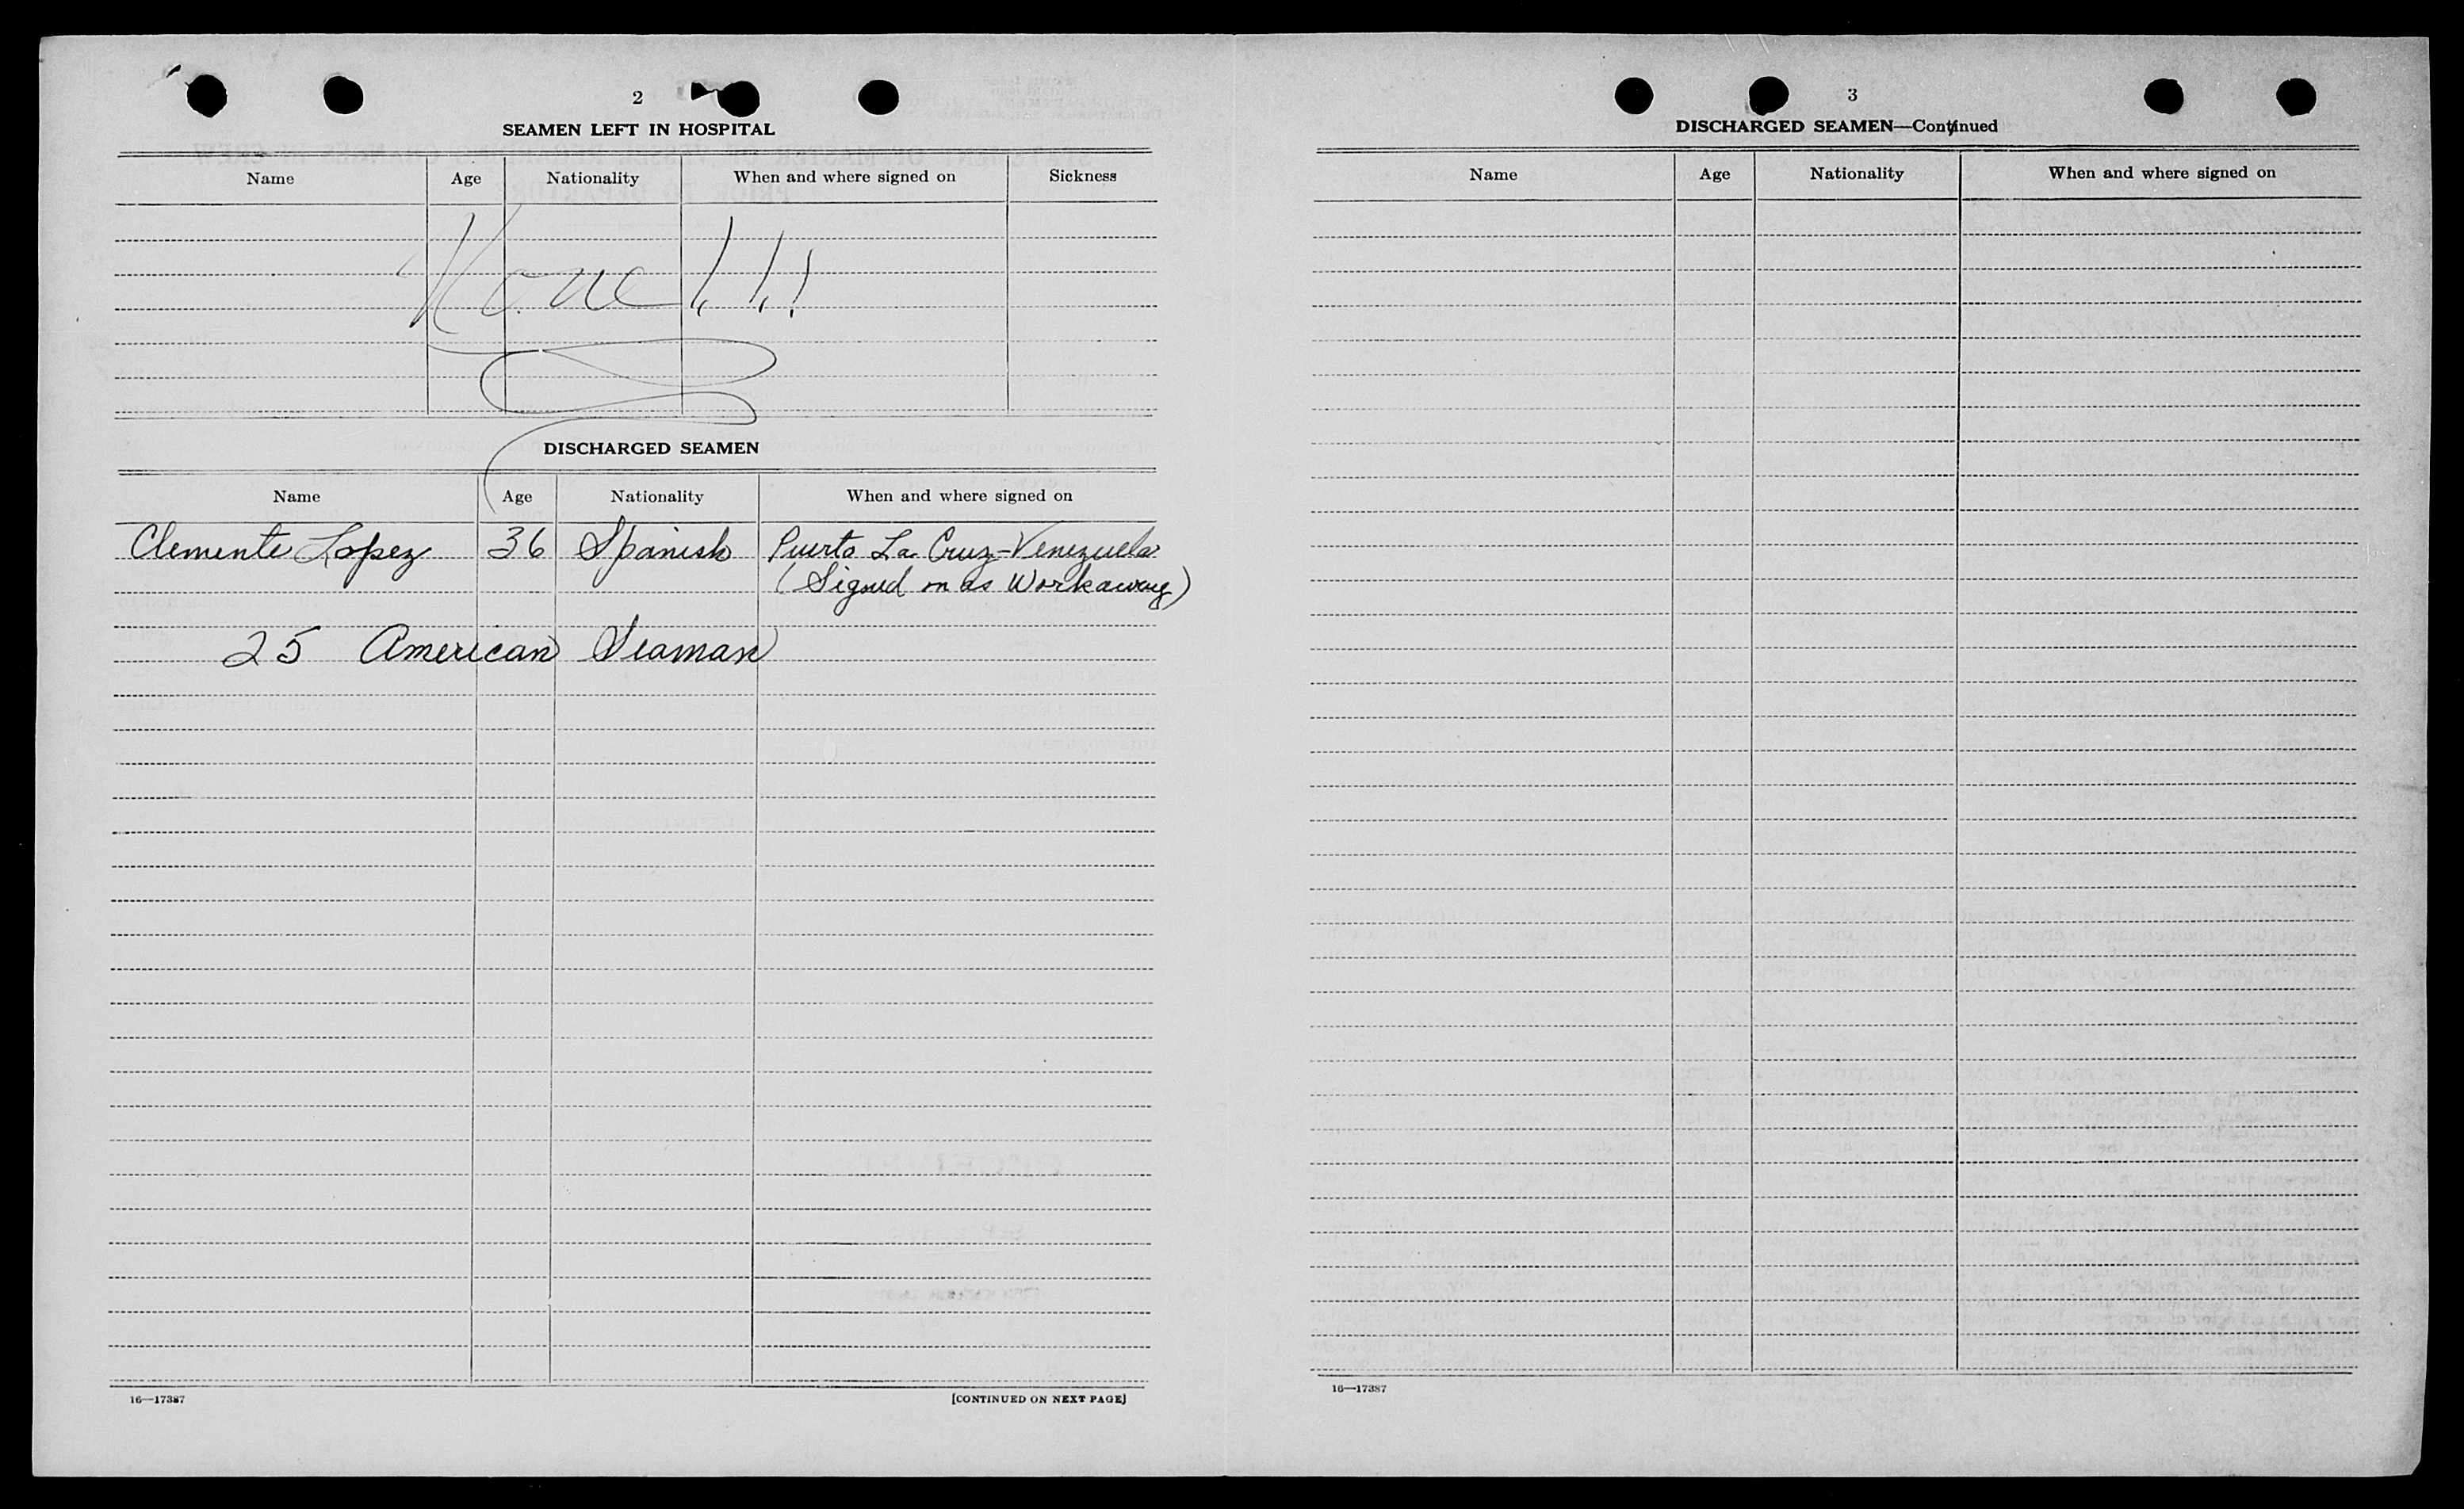 2
SEAMEN LEFT IN HOSPITAL
Name Age Nationality When and where signed on Sickness
None!!!
DISCHARGED SEAMEN
Name Age Nationality When and where signed on
Clemente Lopez 36 Spanish Puerto La Cruz-Venezuela
(Signed on as Workaway)
25 American Seaman
16—17387 [CONTINUED ON NEXT PAGE]
3
DISCHARGED SEAMEN—Continued
Name Age Nationality When and where signed on
16—17387